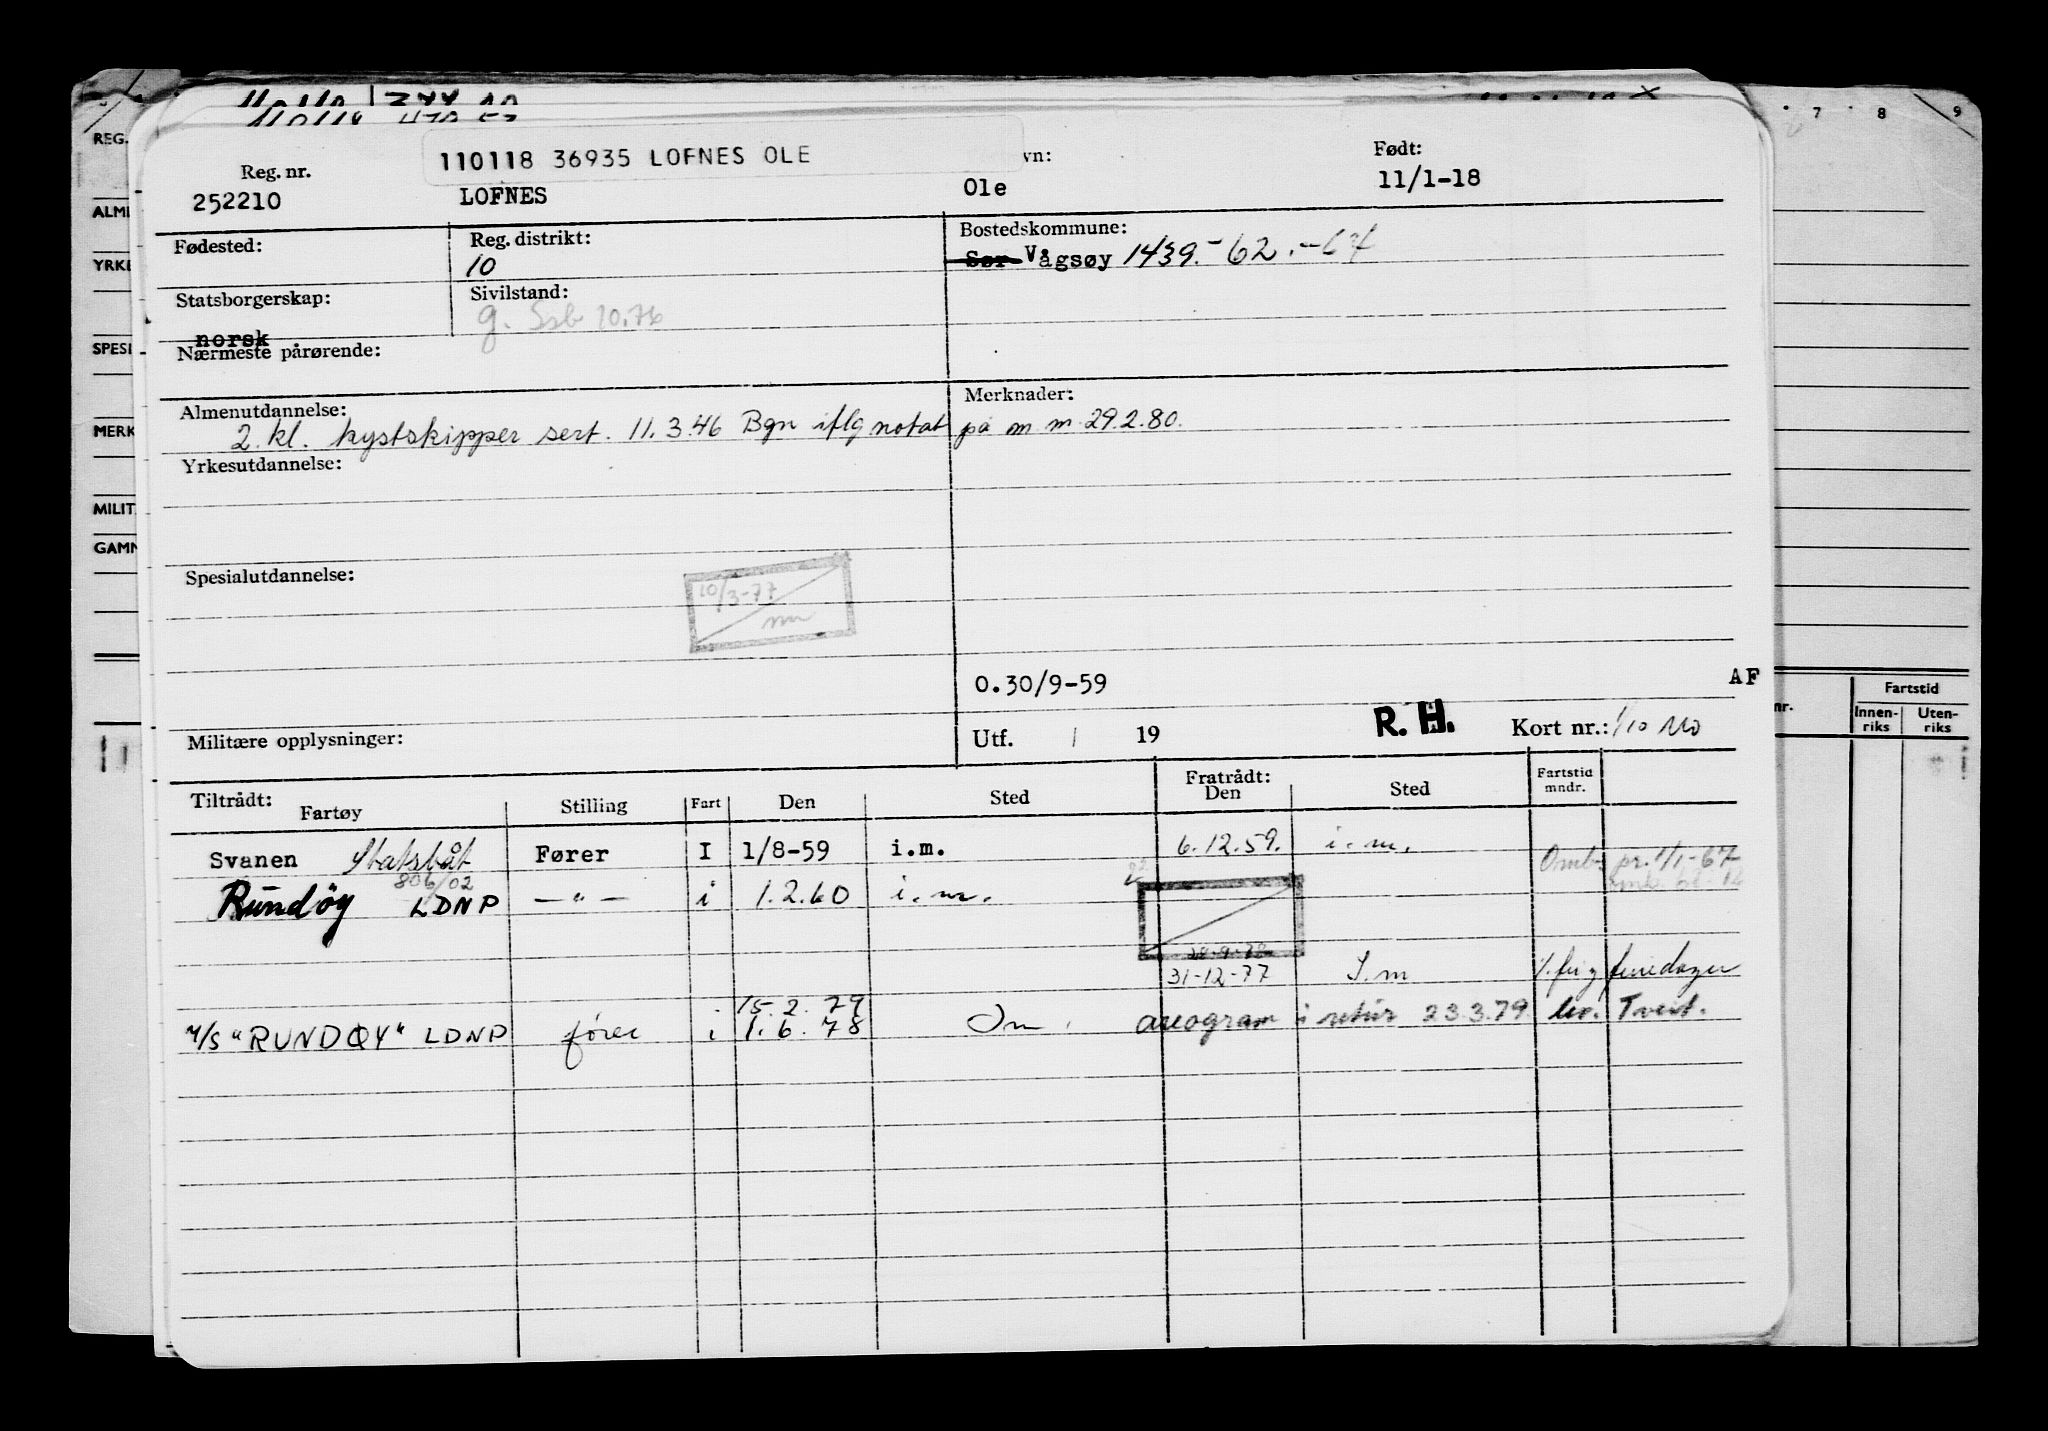 REG.
7 8 9
110118 36935 LOFNES OLE
Reg. nr. vn: Født:
252210 LOFNES Ole 11/1-18
ALM
Fødested: Reg. distrikt: Bostedskommune:
10 Sør Vågsøy 1439.- 62.-67
YRKE
Statsborgerskap: Sivilstand:
norsk g. Ssb 10.76
SPESI
Nærmeste pårørende:
Almenutdannelse: Merknader:
MERK
2. kl. kystskipper sert. 11.3.46 Bgn iflg notat på m.m. 29.2.80.
Yrkesutdannelse:
MILIT
GAMN
Spesialutdannelse:
10/3-77
0.30/9-59 AF
Militære opplysninger: Utf. / 19 R. H. Kort nr.: 1/10
nr. Fartstid
Innen-riks Uten-riks
Tiltrådt: Fratrådt:
Fartøy Stilling Fart Den Sted Den Sted Fartstid mndr.
Svanen Statsbåt Fører I 1/8-59 i.m. 6.12.59. i.m.
Omb. pr. 1/1-67
806/02
Rundøy LDNP —"— i 1.2.60 i.m.
28-9-78
31-12-77 I.m feriedager
15.2.79
M/S "RUNDØY" LDNP fører i 1.6.78 Om. areogram i retur 23.3.79 lev. Tvert.